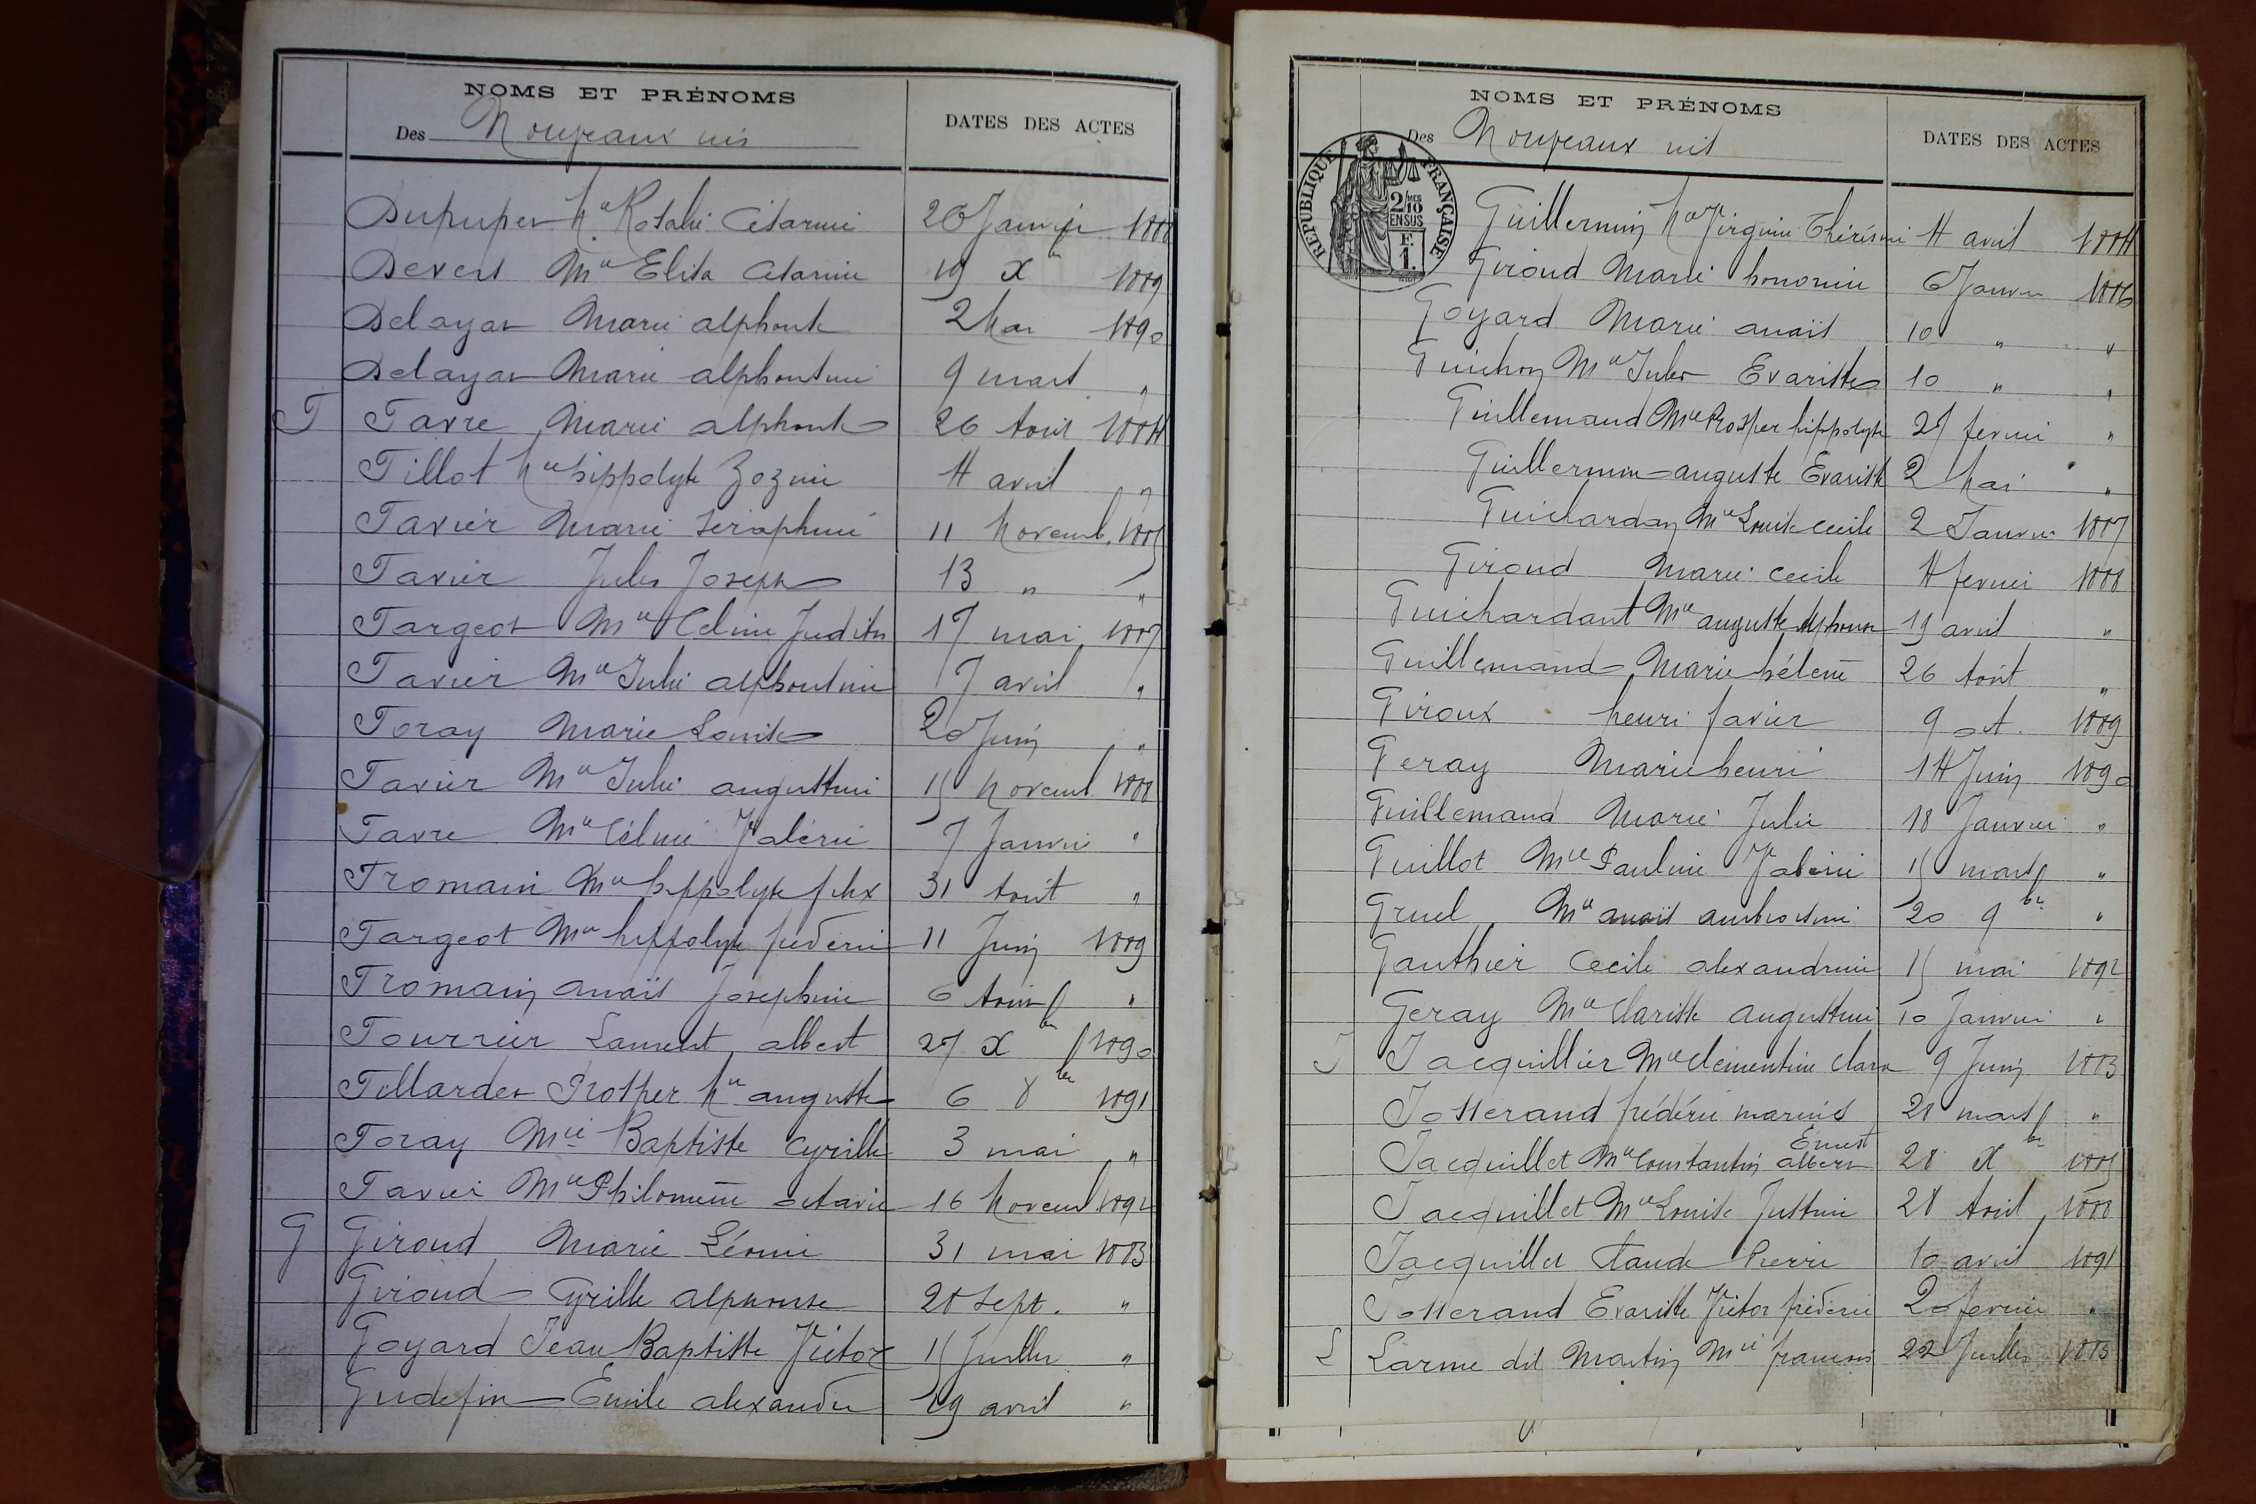 NOMS ET PRÉNOMS
DATES DES ACTES
Des Nouveaux nés
Dupuper Mie Rosalie Césarine 26 Janvier 1888
Devert Mie Elisa Césarine 19 Xbre 1889
Delayat Marie alphonse 2 Mai 1890
Delayat Marie alphonsine 9 mars "
F Favre Marie alphonse 26 Août 1884
Fillot Mie hippolyte Zozime 4 avril "
Favier Marie séraphine 11 Novemb. 1885
Favier Jules Joseph 13 " "
Fargeot Mie Céline Judith 17 mai 1887
Favier Mie Julie alphonsine 7 avril "
Foray Marie Louise 20 Juin "
Favier Mie Julie augustine 15 Novemb 1888
Favre Mie Céline Valérie 7 Janvier "
Fromain Mie hippolyte felix 31 Août "
Fargeot Mie hippolyte féderic 11 Juin 1889
Fromain anaïs Josephine 6 Août "
Fourrier Laurent albert 27 Xbre 1890
Fillardet Prosper Mie auguste 6 8bre 1891
Foray Mie Baptiste Cyrille 3 mai "
Favier Mie Philomène octavie 16 Novemb 1892
G Giroud Marie Léonie 31 mai 1883
Giroud Cyrille alphonse 28 Sept. "
Goyard Jean Baptiste Victor 15 Juillet "
Gudefin Emile alexandre 19 avril "
NOMS ET PRÉNOMS
DATES DES ACTES
Des Nouveaux nés
RÉPUBLIQUE FRANÇAISE
2/10 EN SUS
F. 1.
Guillermin Mie Virginie Thérésine 4 avril 1884
Giroud Marie honorine 6 Janvier 1886
Goyard Marie anaïs 10 " "
Guichon Mie Jules Evariste 10 " "
Guillemaud Mie Prosper hippolyte 27 fevrier "
Guillermin auguste Evariste 2 Mai "
Guichardan Mie Louise cecile 2 Janvier 1887
Giroud Marie cecile 4 fevrier 1888
Guichardant Mie auguste Alphonse 19 avril "
Guillemaud Marie hélène 26 Août "
Giroux henri favier 9 oct. 1889
Geray Marie henri 14 Juin 1890
Guillemaud Marie Julie 18 Janvier "
Guillot Mie Pauline Valérie 15 mars "
Gruel Mie anaïs ambroisine 20 9bre "
Gauthier Cecile alexandrine 15 mai 1892
Geray Mie Clarisse augustine 10 Janvier "
J Jacquillier Mie Clementine Clara 9 Juin 1883
Josserand frédéric marius 28 mars "
Ernest
Jacquillet Mie Constantin albert 28 Xbre 1885
Jacquillet Mie Louise Justine 28 Août 1888
Jacquillet Claude Pierre 10 avril 1891
Josserand Evariste Victor fréderic 20 fevrier "
L Larme dit Martin Mie francois 22 Juillet 1883